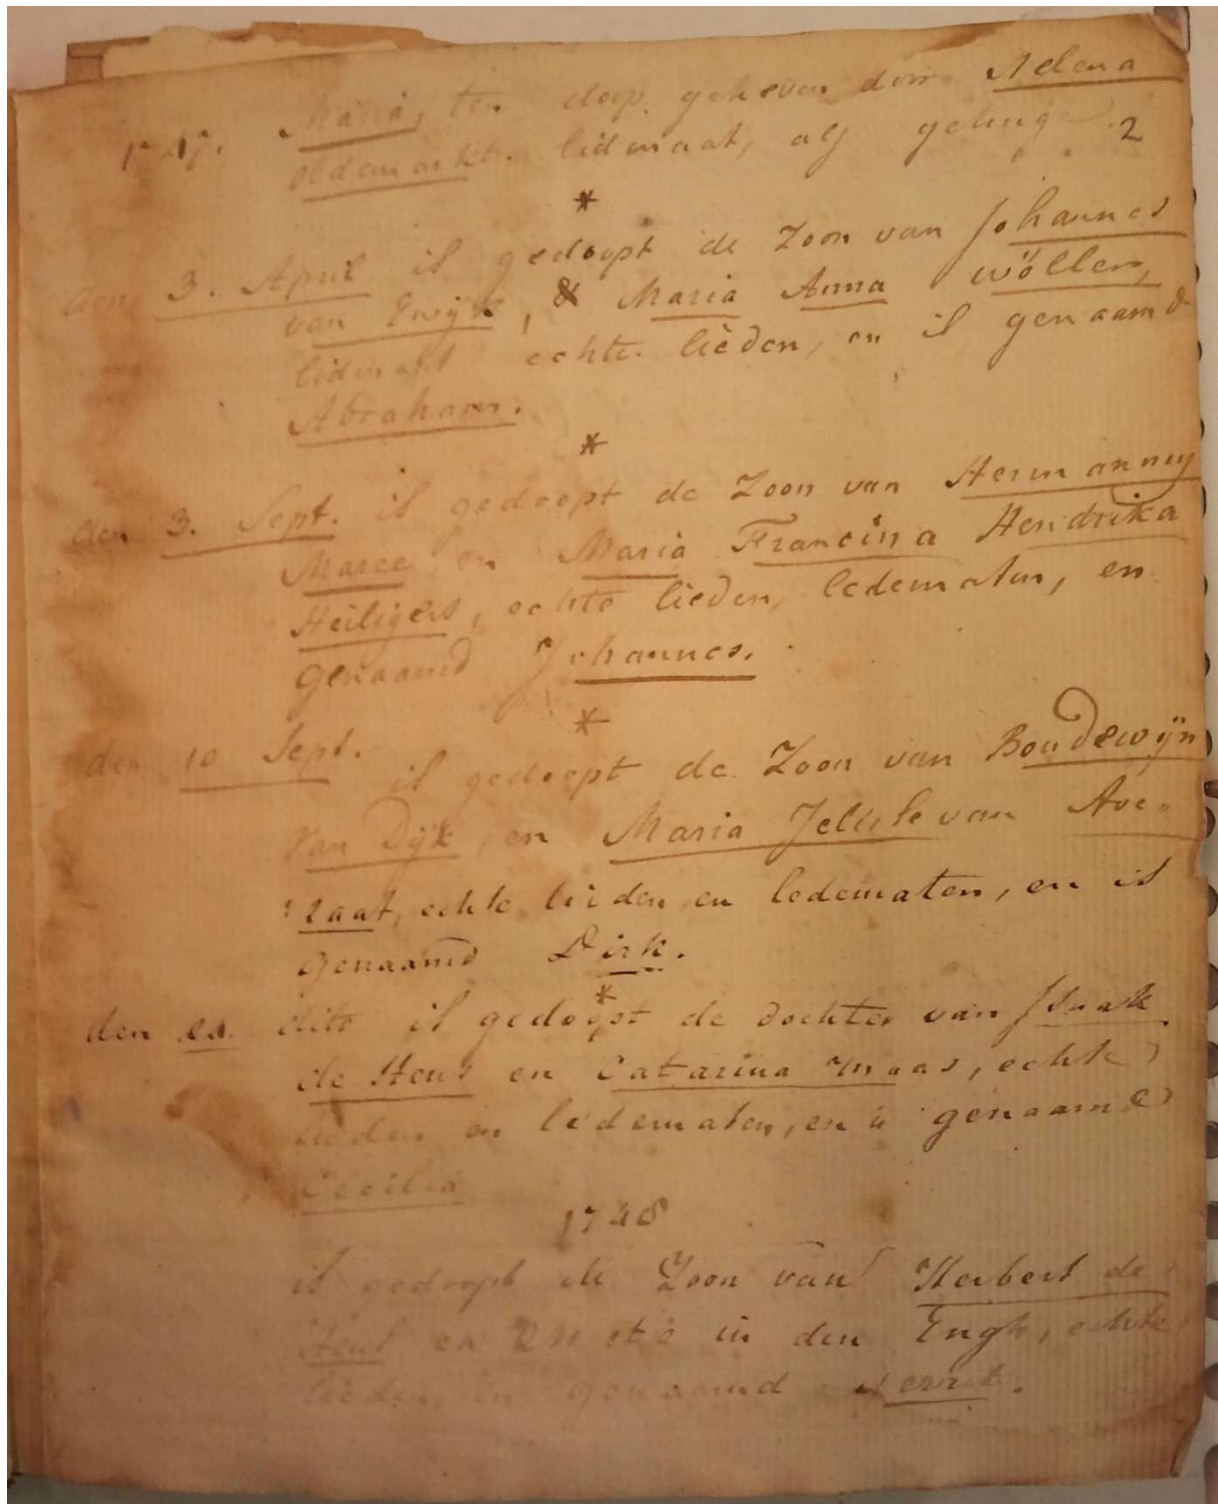 Maria, ten doop geheven door Helena
1747. Oldemarkt. lidmaat, als getuige. 2
*
den 3. April is gedoopt de Zoon van Johannes
van Ewijk, & Maria Anna wöllen,
lidmaat echte lieden, en is genaamd
Abraham.
*
den 3. Sept. is gedoopt de Zoon van Hermannus
Maree en Maria Francina Hendrika
Heiligers, echte lieden, ledematen, en
genaamd Johannes.
*
den 10 Sept. is gedoopt de Zoon van Boudewijn
Van Dijk, en Maria van Ave-
zaat, echte lieden en ledematen, en is
genaamd Dirk.
*
den dito is gedoopt de dochter van Isaak
de Heus en Catarina Maas, echte
lieden en ledematen, en is genaamd
Cecilia
1748
is gedoopt de Zoon van Herbert de
Heus en in den Engh, echte
lieden, en genaamd Gerrit.